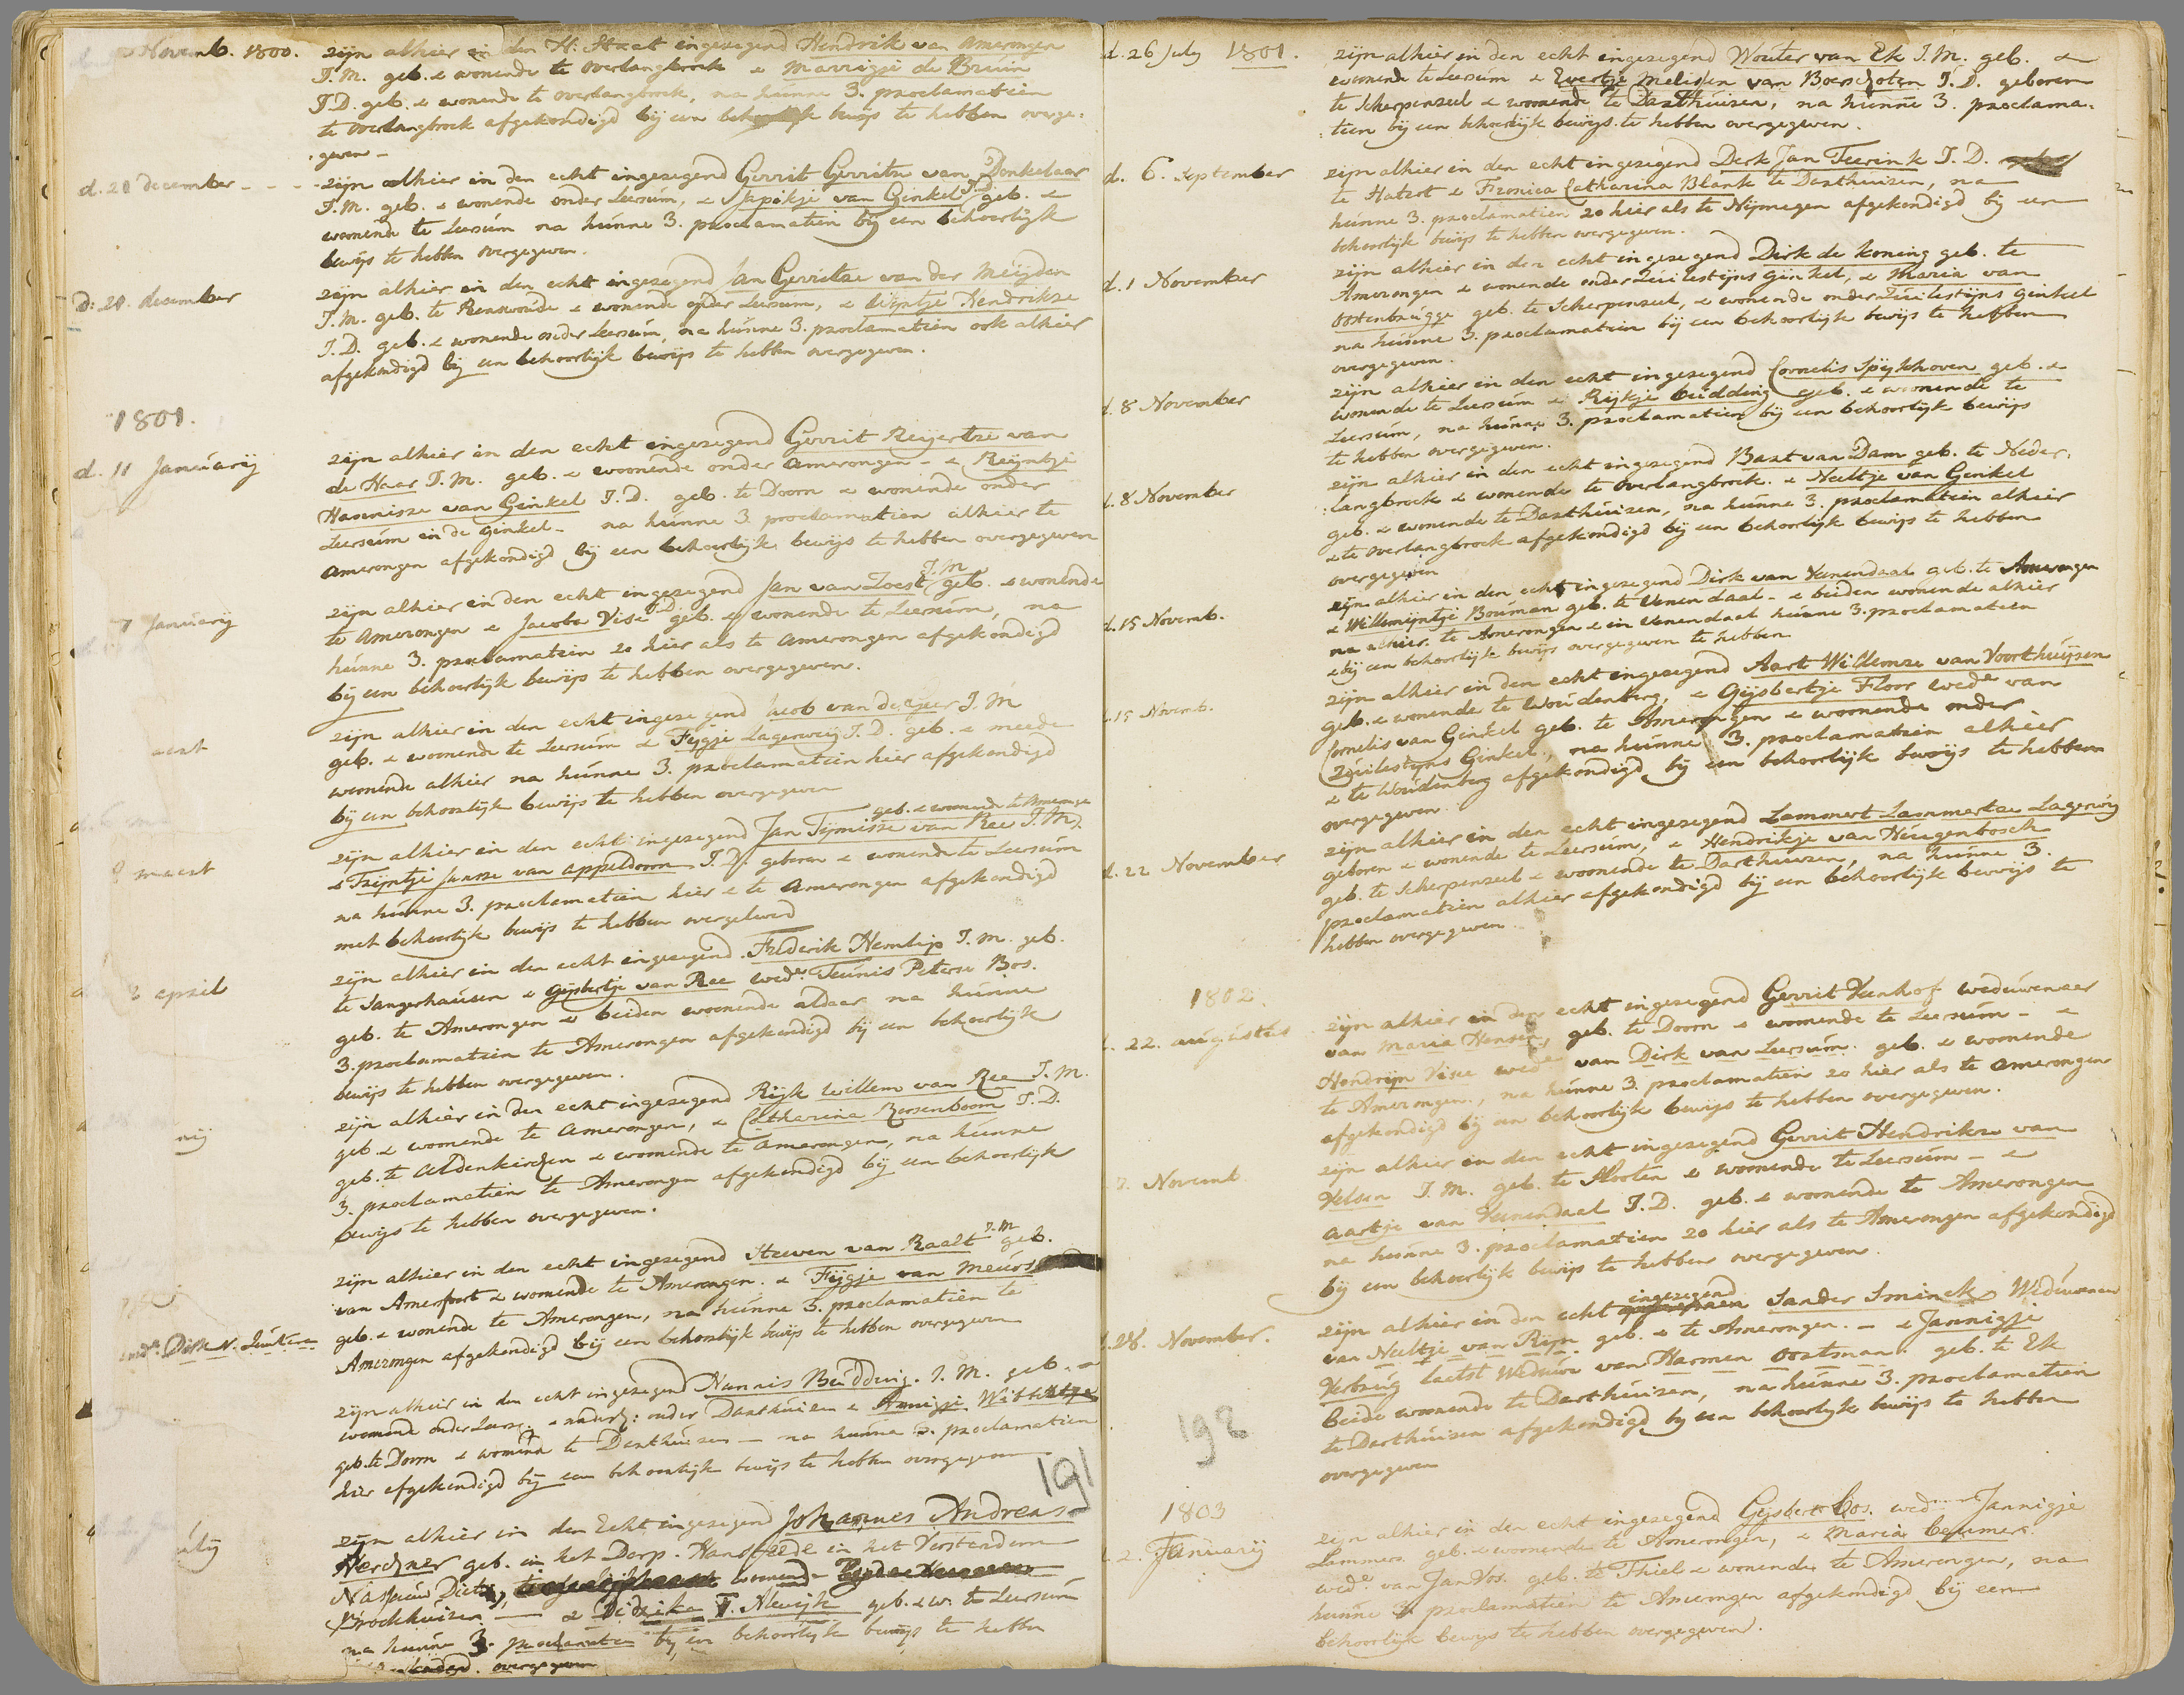 Novemb. 1800.
zijn alhier in den H: Staat ingezegend Hendrik van Amerongen
J.M. geb. & wonende te Overlangbroek & Marrigje de Bruin
J.D. geb. & wonende te Overlangbroek, na hunne 3. proclamatien
te Overlangbroek afgekondigd bij een behoorlijk bewijs te hebben overge-
geven -
d. 21 december - - - zijn alhier in den echt ingezegend Gerrit Gerritse van Donkelaar
J.M. geb. & wonende onder Leersum, & van Ginkel J.D. geb. &
wonende te Leersum na hunne 3. proclamatien bij een behoorlijk
bewijs te hebben overgegeven.
D: 28. december
zijn alhier in den echt ingezegend Jan Gerritse van der Meijden
J.M. geb. te Renswoude & wonende onder Leersum, & Wijntje Hendrikse
J.D. geb. & wonende onder Leersum, na hunne 3. proclamatien ook alhier
afgekondigd bij een behoorlijk bewijs te hebben overgegeven.
1801.
d. 11 Januarij
zijn alhier in den echt ingezegend Gerrit Reijertze van
de Haar J.M. geb. & woonende onder Amerongen - & Reijntje
Hannisze van Ginkel J.D. geb. te Doorn & wonende onder
Leersum in de Ginkel - na hunne 3 proclamatien alhier te
Amerongen afgekondigd bij een behoorlijk bewijs te hebben overgegeven
Januarij
zijn alhier in den echt ingezegend Jan van Zoest J.M geb. & wonende
te Amerongen & Jacoba Vise J.D. geb. & wonende te Leersum, na
hunne 3. proclamatien zo hier als te Amerongen afgekondigd
bij een behoorlijk bewijs te hebben overgegeven.
zijn alhier in den echt ingezegend Jacob van de J.M
geb. & woonende te Leersum & Fijgje Lagerweij J.D. geb. & meede
wonende alhier na hunne 3. proclamatien hier afgekondigd
bij een behoorlijk bewijs te hebben overgegeven
maert
geb. & wonende te Amerongen
zijn alhier in den echt ingezegend Jan Tijmisse van Ree J.M.
& Trijntje Janse van Appeldoorn J.D. geboren & wonende te Leersum
na hunne 3. proclamatien hier & te Amerongen afgekondigd
met behoorlijk bewijs te hebben overgeleverd
april
zijn alhier in den echt ingezegend Frederik Hemlip J.M. geb.
te Sangerhausen & Gijsbertje van Ree wede. Teunis Peterse Bos.
geb. te Amerongen & beiden woonende aldaar na hunne
3. proclamatien te Amerongen afgekondigd bij een behoorlijk
bewijs te hebben overgegeven.
zijn alhier in den echt ingezegend Rijk Willem van Ree J.M.
geb & wonende te Amerongen, & Catharina Roosenboom J.D.
geb. te Aldenkirchen & wonende te Amerongen, na hunne
3. proclamatien te Amerongen afgekondigd bij een behoorlijk
bewijs te hebben overgegeven.
zijn alhier in den echt ingezegend Steeven van Raalt J.M geb.
van Amersfoort & wonende te Amerongen. & Fijgje van Meurs
geb. & wonende te Amerongen, na hunne 3. proclamatien te
Amerongen afgekondigd bij een behoorlijk bewijs te hebben overgegeven
zijn alhier in den echt ingezegend Nannis Budding. J.M. geb. &
woonende onder Leers. & naderh: onder Darthuisen & Annigje
geb. te Doorn & wonende te Darthuisen - na hunne 3. proclamatien
hier afgekondigd bij een behoorlijk bewijs te hebben overgegeven
191
zijn alhier in den Echt ingezegend Johannes Andreas
Herchner geb. in het Dorp. in het Vorstendom
Nassauw wonende
Brockhuizen - & F. Alewijk geb. & w. te Leersum
na hunne 3. proclamatien bij een behoorlijk bewijs te hebben
overgegeven
d. 26 July 1801.
zijn alhier in den echt ingezegend Wouter van Ek J.M. geb. &
wonende te Leersum & Evertje Melissen van Boerschoten J.D. geboren
te Scherpenzeel & woonende te Darthuisen, na hunne 3. proclama-
:tien bij een behoorlijk bewijs te hebben overgegeven.
d. 6. September
zijn alhier in den echt ingezegend Derk Jan Teerink J.D.
te Hatert & Fronica Catharina Blank te Darthuisen, na
hunne 3. proclamatien zo hier als te Nijmegen afgekondigd bij een
behoorlijk bewijs te hebben overgegeven.
d. 1 November
zijn alhier in den echt ingezegend Dirk de Koning geb. te
Amerongen & wonende onder Zuilestijns Ginkel, & Maria van
Oostenbrugge geb. te Scherpenzeel, & wonende onder Zuilestijns Ginkel
na hunne 3. proclamatien bij een behoorlijk bewijs te hebben
overgegeven.
d. 8 November
zijn alhier in den echt ingezegend Cornelis Spijkhoven geb. &
wonende te Leersum & Rijkje Budding geb. & woonende te
Leersum, na hunne 3. proclamatien bij een behoorlijk bewijs
te hebben overgegeven.
d. 8 November
zijn alhier in den echt ingezegend Bart van Dam geb. te Neder-
:langbroek & wonende te Overlangbroek. & Neeltje van Ginkel
geb. & wonende te Darthuisen, na hunne 3. proclamatien alhier
& te Overlangbroek afgekondigd bij een behoorlijk bewijs te hebben
overgegeven
d. 15 Novemb.
zijn alhier in den echt ingezegend Dirk van Veenendaal geb. te Amerongen
& Willemijntje Bouman geb. te Venendaal - & beiden wonende alhier
na alhier te Amerongen & in Venendaal hunne 3. proclamatien
& bij een behoorlijk bewijs overgegeven te hebben
15 Novemb.
zijn alhier in den echt ingezegend Aart Willemze van Voorthuijsen
geb. & wonende te Woudenberg, & Gijsbertje Floor wede van
Cornelis van Ginkel geb. te Amerongen & woonende onder
Zuilestijns Ginkel, na hunne 3. proclamatien alhier
& te Woudenberg afgekondigd bij een behoorlijk bewijs te hebben
overgegeven.
d. 22 November
zijn alhier in den echt ingezegend Lammert Lammertse Lagerweij
geboren & wonende te Leersum, & Hendrikje van Heugenbosch
geb. te Scherpenzeel & woonende te Darthuisen, na hunne 3.
proclamatien alhier afgekondigd bij een behoorlijk bewijs te
hebben overgegeven.
1802.
22. augustus
zijn alhier in den echt ingezegend Gerrit Veenhof weduwenaar
van Maria Hensen, geb. te Doorn & wonende te Leersum - &
Hendrijn Visee wede van Dirk van Leersum. geb. & woonende
te Amerongen, na hunne 3. proclamatien zo hier als te Amerongen
afgekondigd bij een behoorlijk bewijs te hebben overgegeven.
7. Novemb.
zijn alhier in den echt ingezegend Gerrit Hendrikse van
Velsen J.M. geb. te Slooten & woonende te Leersum - &
Aartje van Veenendaal J.D. geb. & woonende te Amerongen
na hunne 3. proclamatien zo hier als te Amerongen afgekondigd
bij een behoorlijk bewijs te hebben overgegeven.
28. November.
zijn alhier in den echt ingezegend Sander Sminck Weduwenaar
van Neeltje van Rijn geb. & te Amerongen. - & Jannigje
Verbrug laetst Weduwe van Harmen Oostman. geb. te Ek
beide woonende te Darthuisen, na hunne 3. proclamatien
te Darthuisen afgekondigd bij een behoorlijk bewijs te hebben
overgegeven
192
1803
2. Januarij
zijn alhier in den echt ingezegend Gijsbert Bos. wed. Jannigje
Lammers geb. & woonende te Amerongen, & Maria Beumer.
wede. van Jan Vos. geb. te Thiel & wonende te Amerongen, na
hunne 3 proclamatien te Amerongen afgekondigd bij een
behoorlijk bewijs te hebben overgegeven.